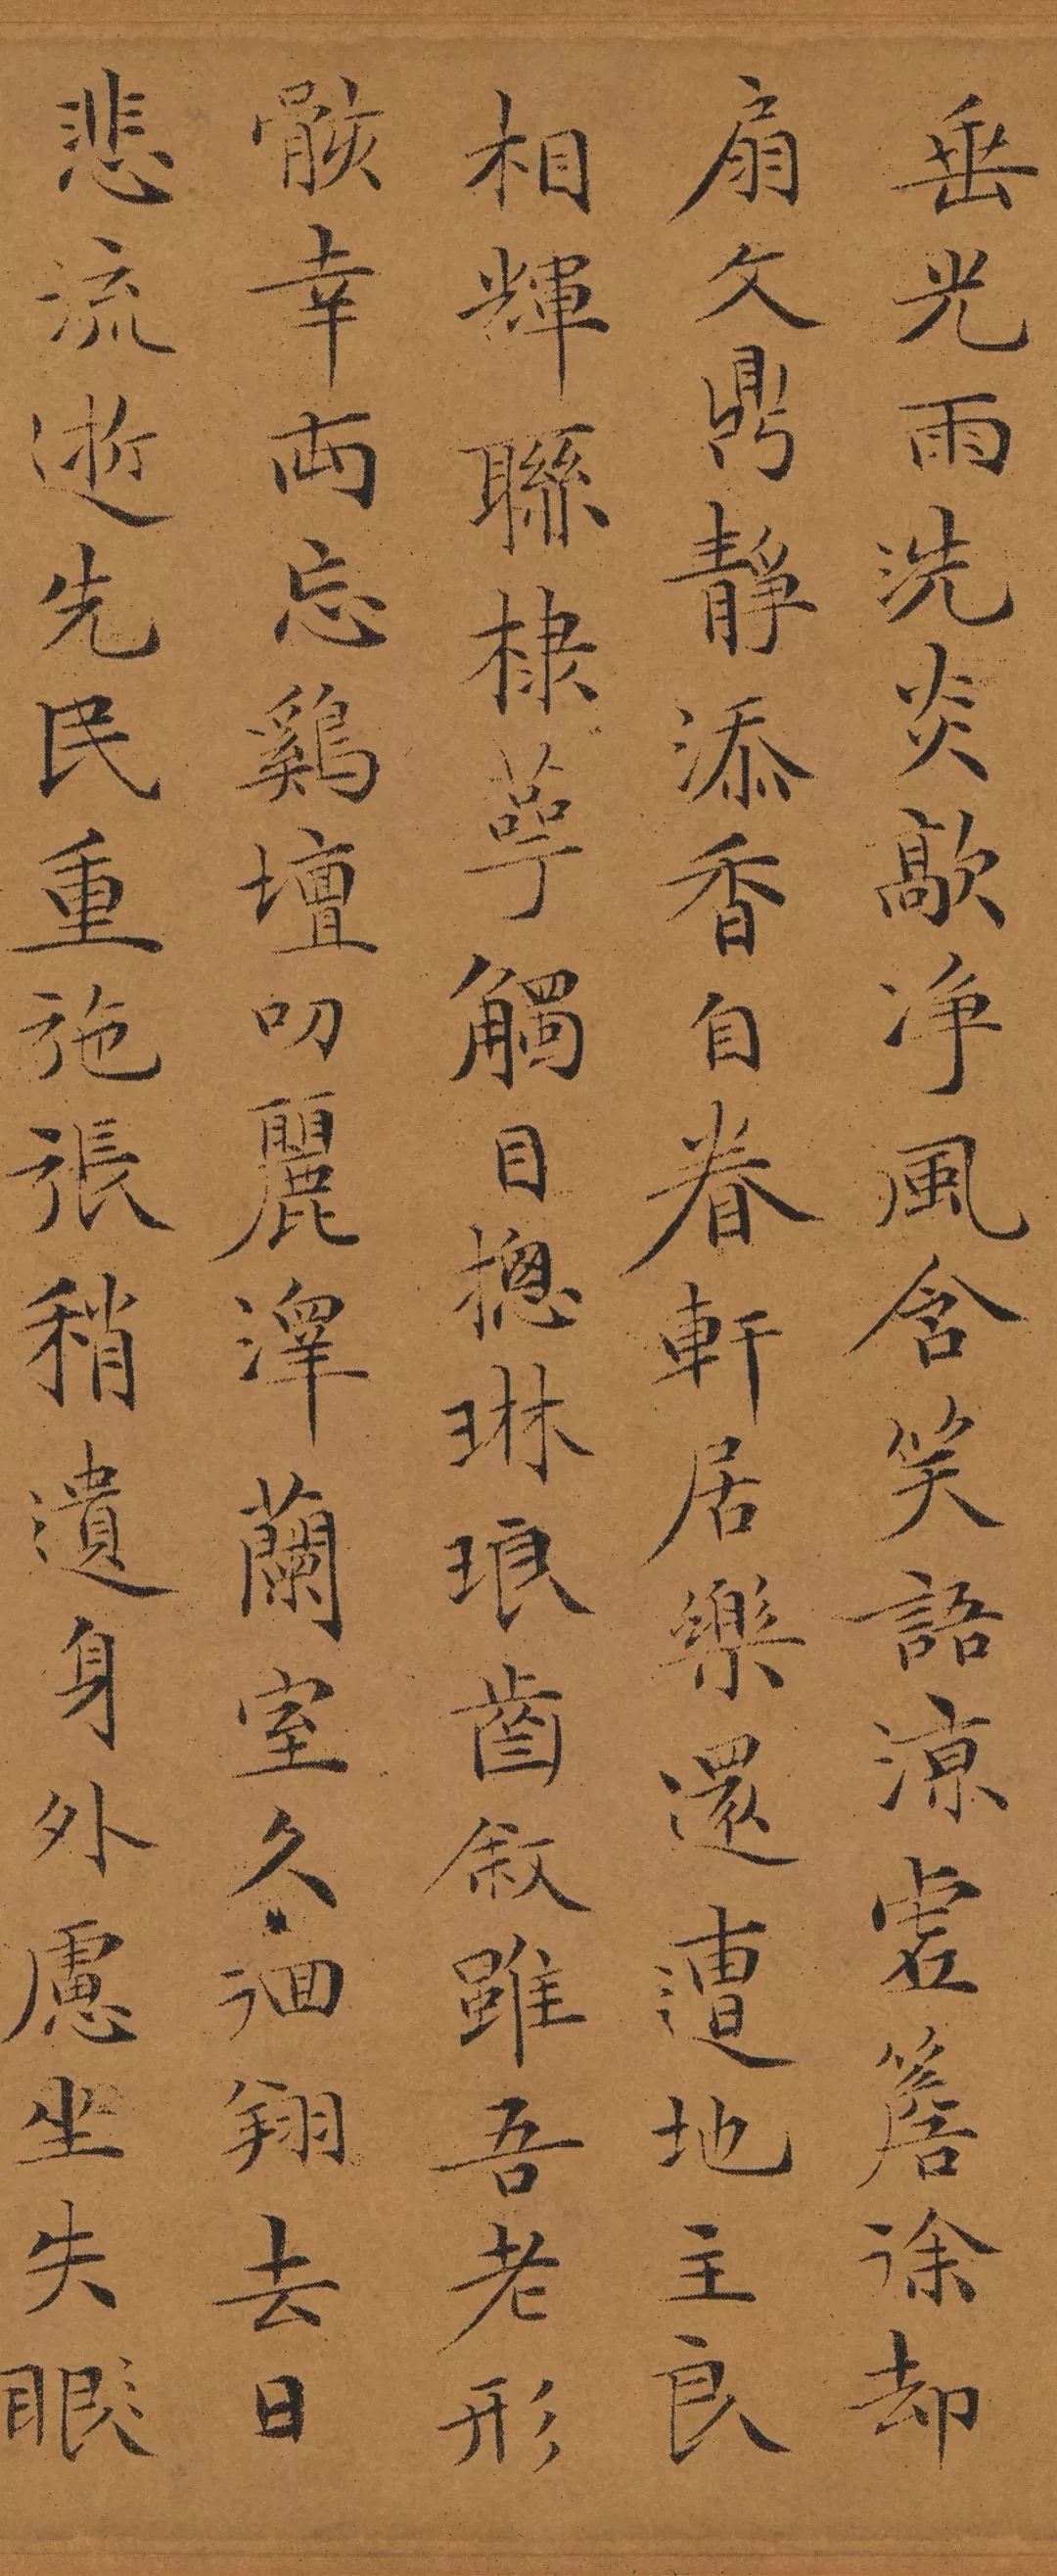 垂光雨洗炎歊净風含笑語涼虚簷徐却
扇文鼎靜添香自眷軒居樂還遭地主良
相輝聯棣萼觸目摠琳琅齒叙雖吾老形
骸幸両忘鷄壇叨麗澤蘭室久徊翔去日
悲流逝先民重弛張稍遺身外慮坐失眼